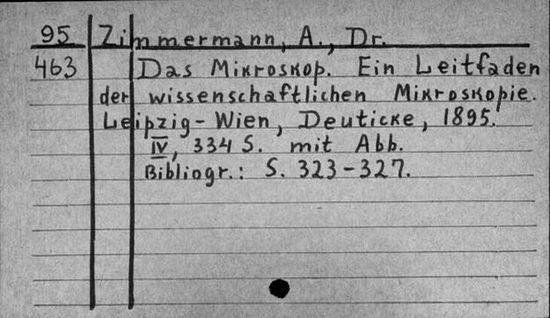 95 Zimmermann, A., Dr.
463 Das Mikroskop. Ein Leitfaden
der wissenschaftlichen Mikroskopie.
Leipzig-Wien, Deuticke, 1895.
IV, 334 S. mit Abb.
Bibliogr.: S. 323-327.